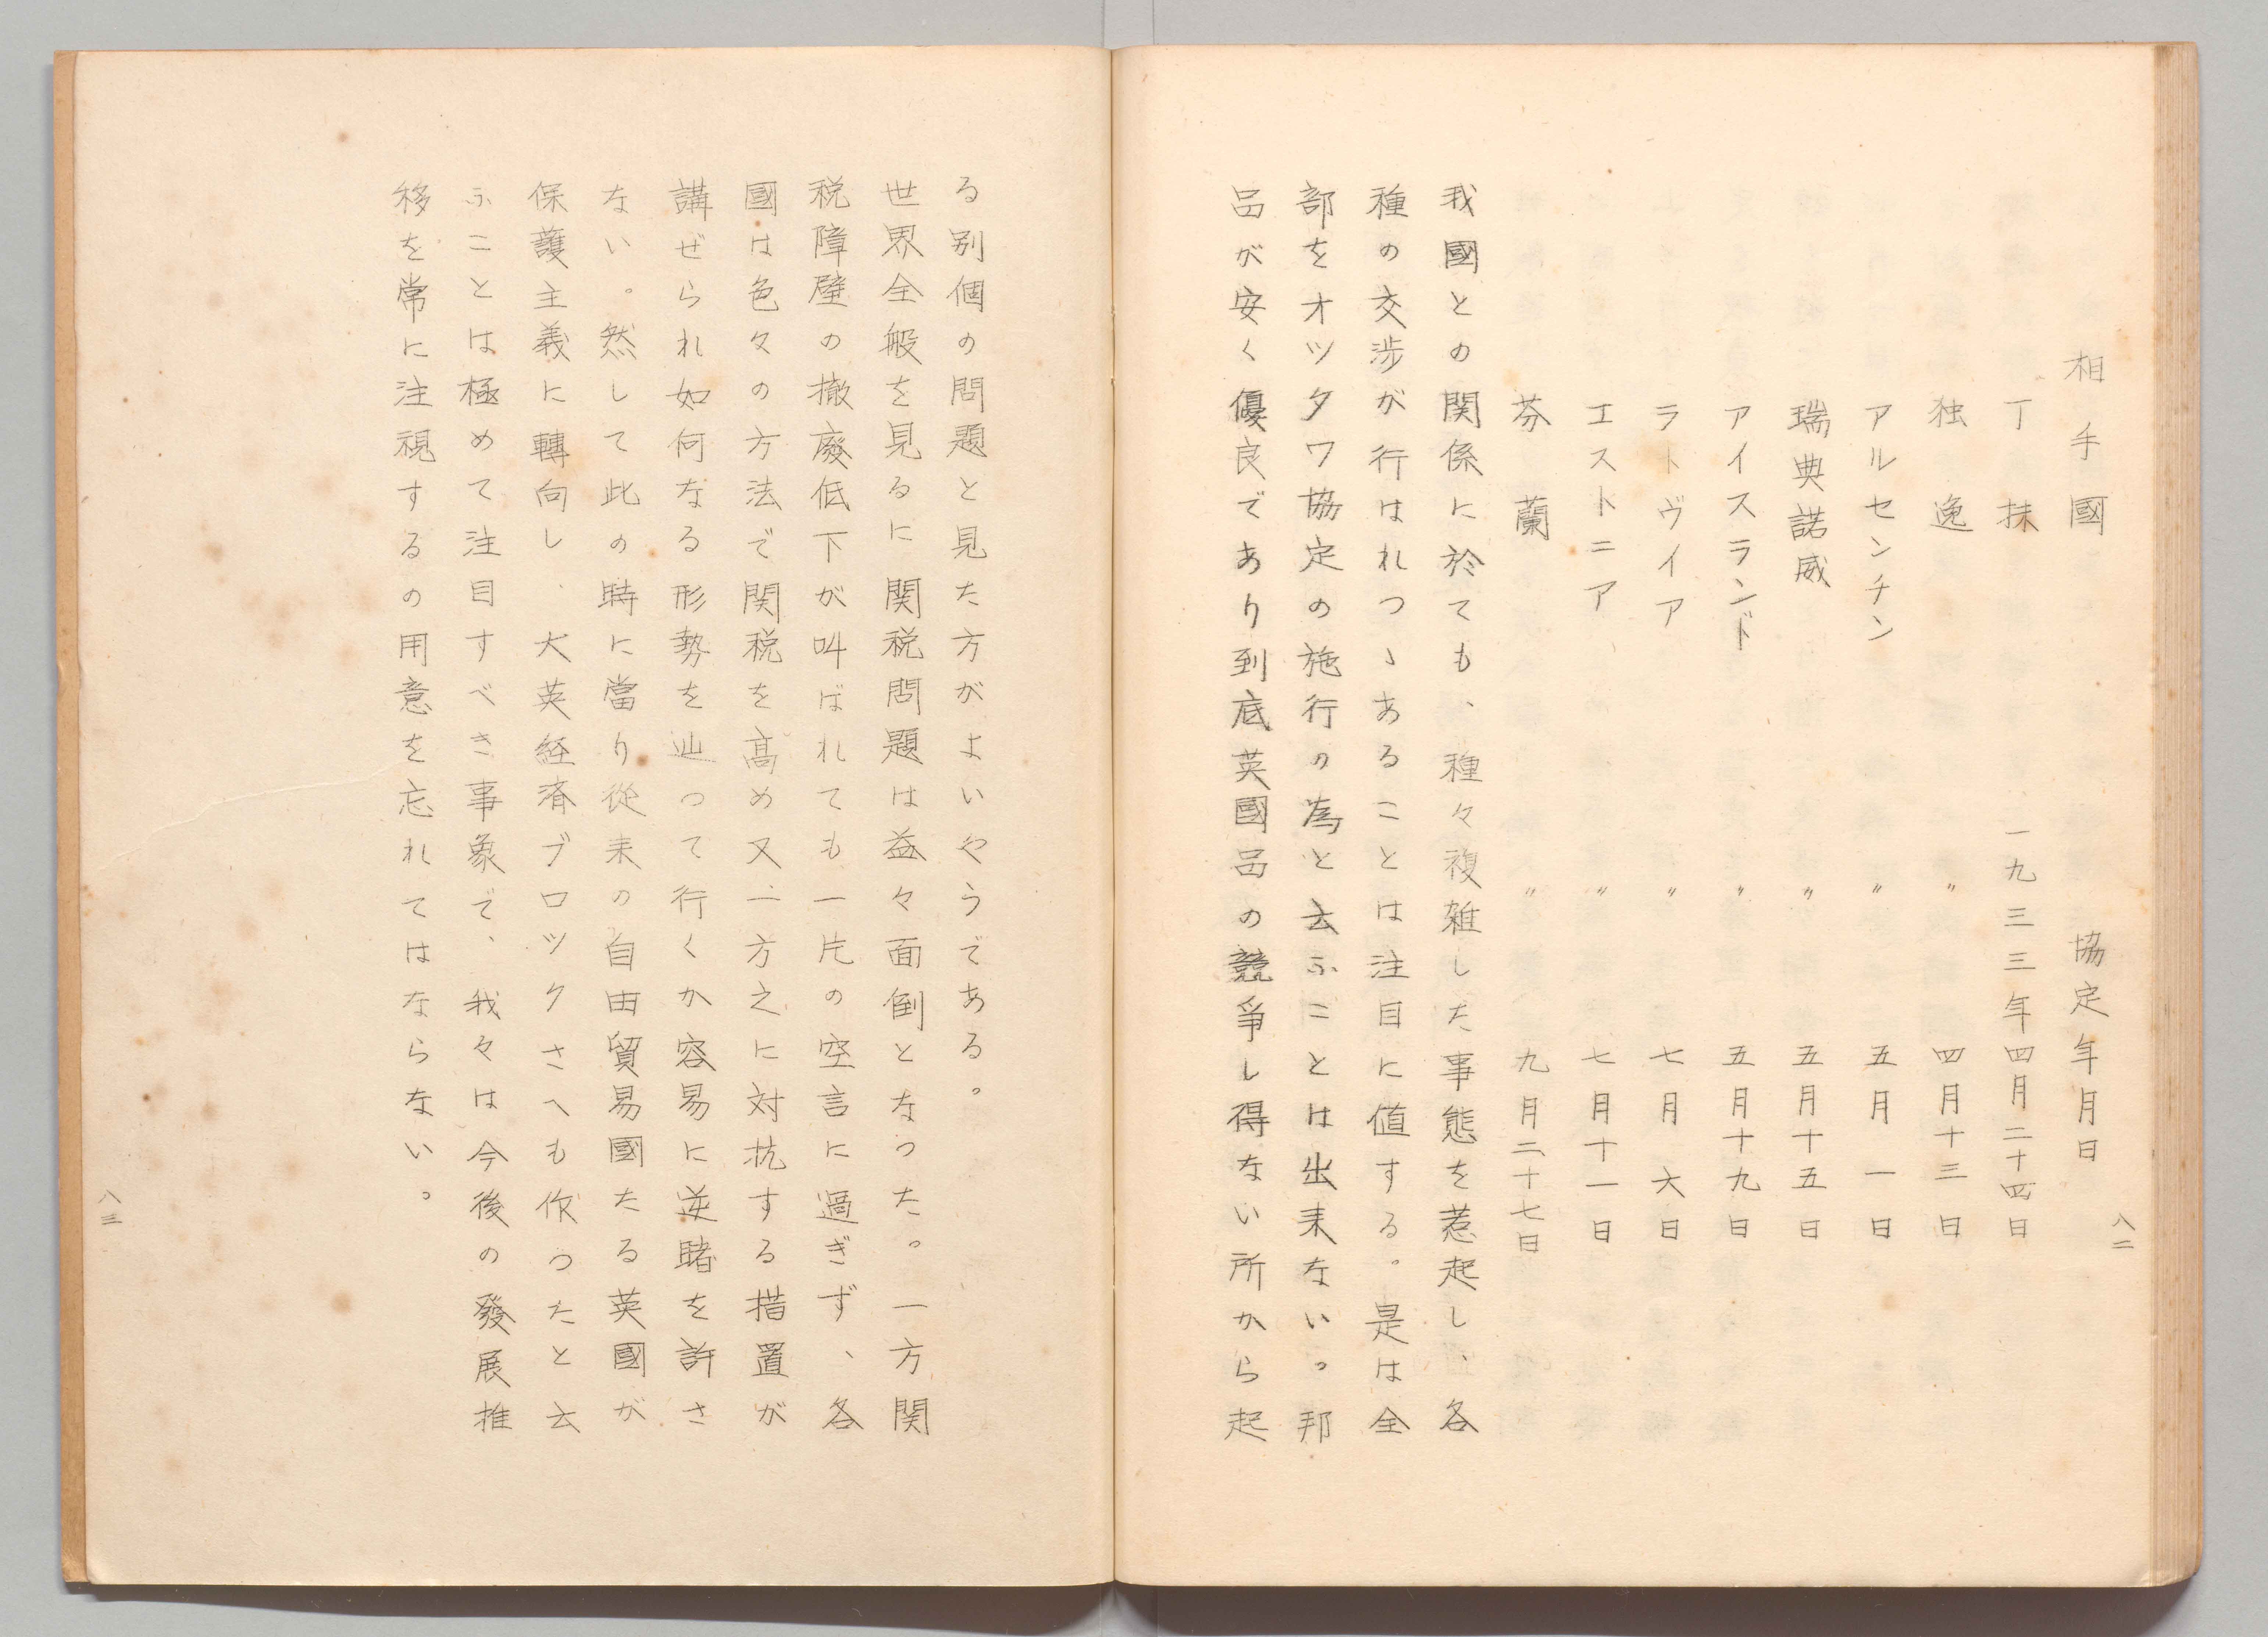 八二
相手國　協定年月日
丁抹　一九三三年四月二十四日
独逸　〃　四月十三日
アルセンチン　〃　五月一日
瑞典諾威　〃　五月十五日
アイスランド　〃　五月十九日
ラトヴイア　〃　七月六日
エストニア　〃　七月十一日
芬蘭　〃　九月二十七日
我國との関係に於ても、種々複雑した事態を惹起し、各
種の交渉が行はれつゝあることは注目に値する。是は全
部をオツタワ協定の施行の為と云ふことは出来ない。邦
品が安く優良であり到底英國品の競爭し得ない所から起
る別個の問題と見た方がよいやうである。
世界全般を見るに関税問題は益々面倒となつた。一方関
税障壁の撤廢低下が叫ばれても一片の空言に過ぎず、各
國は色々の方法で関税を高め又一方之に対抗する措置が
講ぜられ如何なる形勢を辿つて行くか容易に逆睹を許さ
ない。然して此の時に當り從来の自由貿易國たる英國が
保護主義に轉向し、大英経済ブロツクさへも作つたと云
ふことは極めて注目すべき事象で、我々は今後の發展推
移を常に注視するの用意を忘れてはならない。
八三